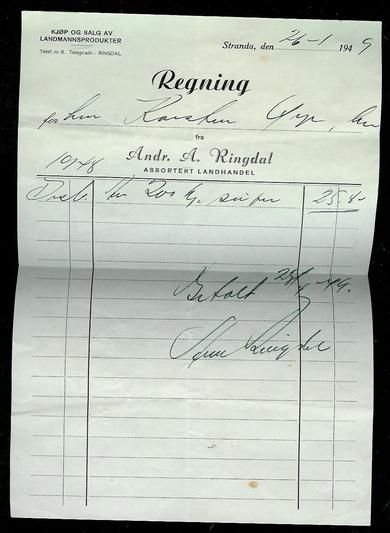 KJØP OG SALG AV
LANDMANNSPRODUKTER
Telef. nr. 6. Telegr.adr.- RINGDAL
Stranda, den 26-1 1949
Regning
for Herr Karsten
fra
Andr. A. Ringdal
ASSORTERT LANDHANDEL
10/1-48
200 kg.
Betalt -49.
Ringdal